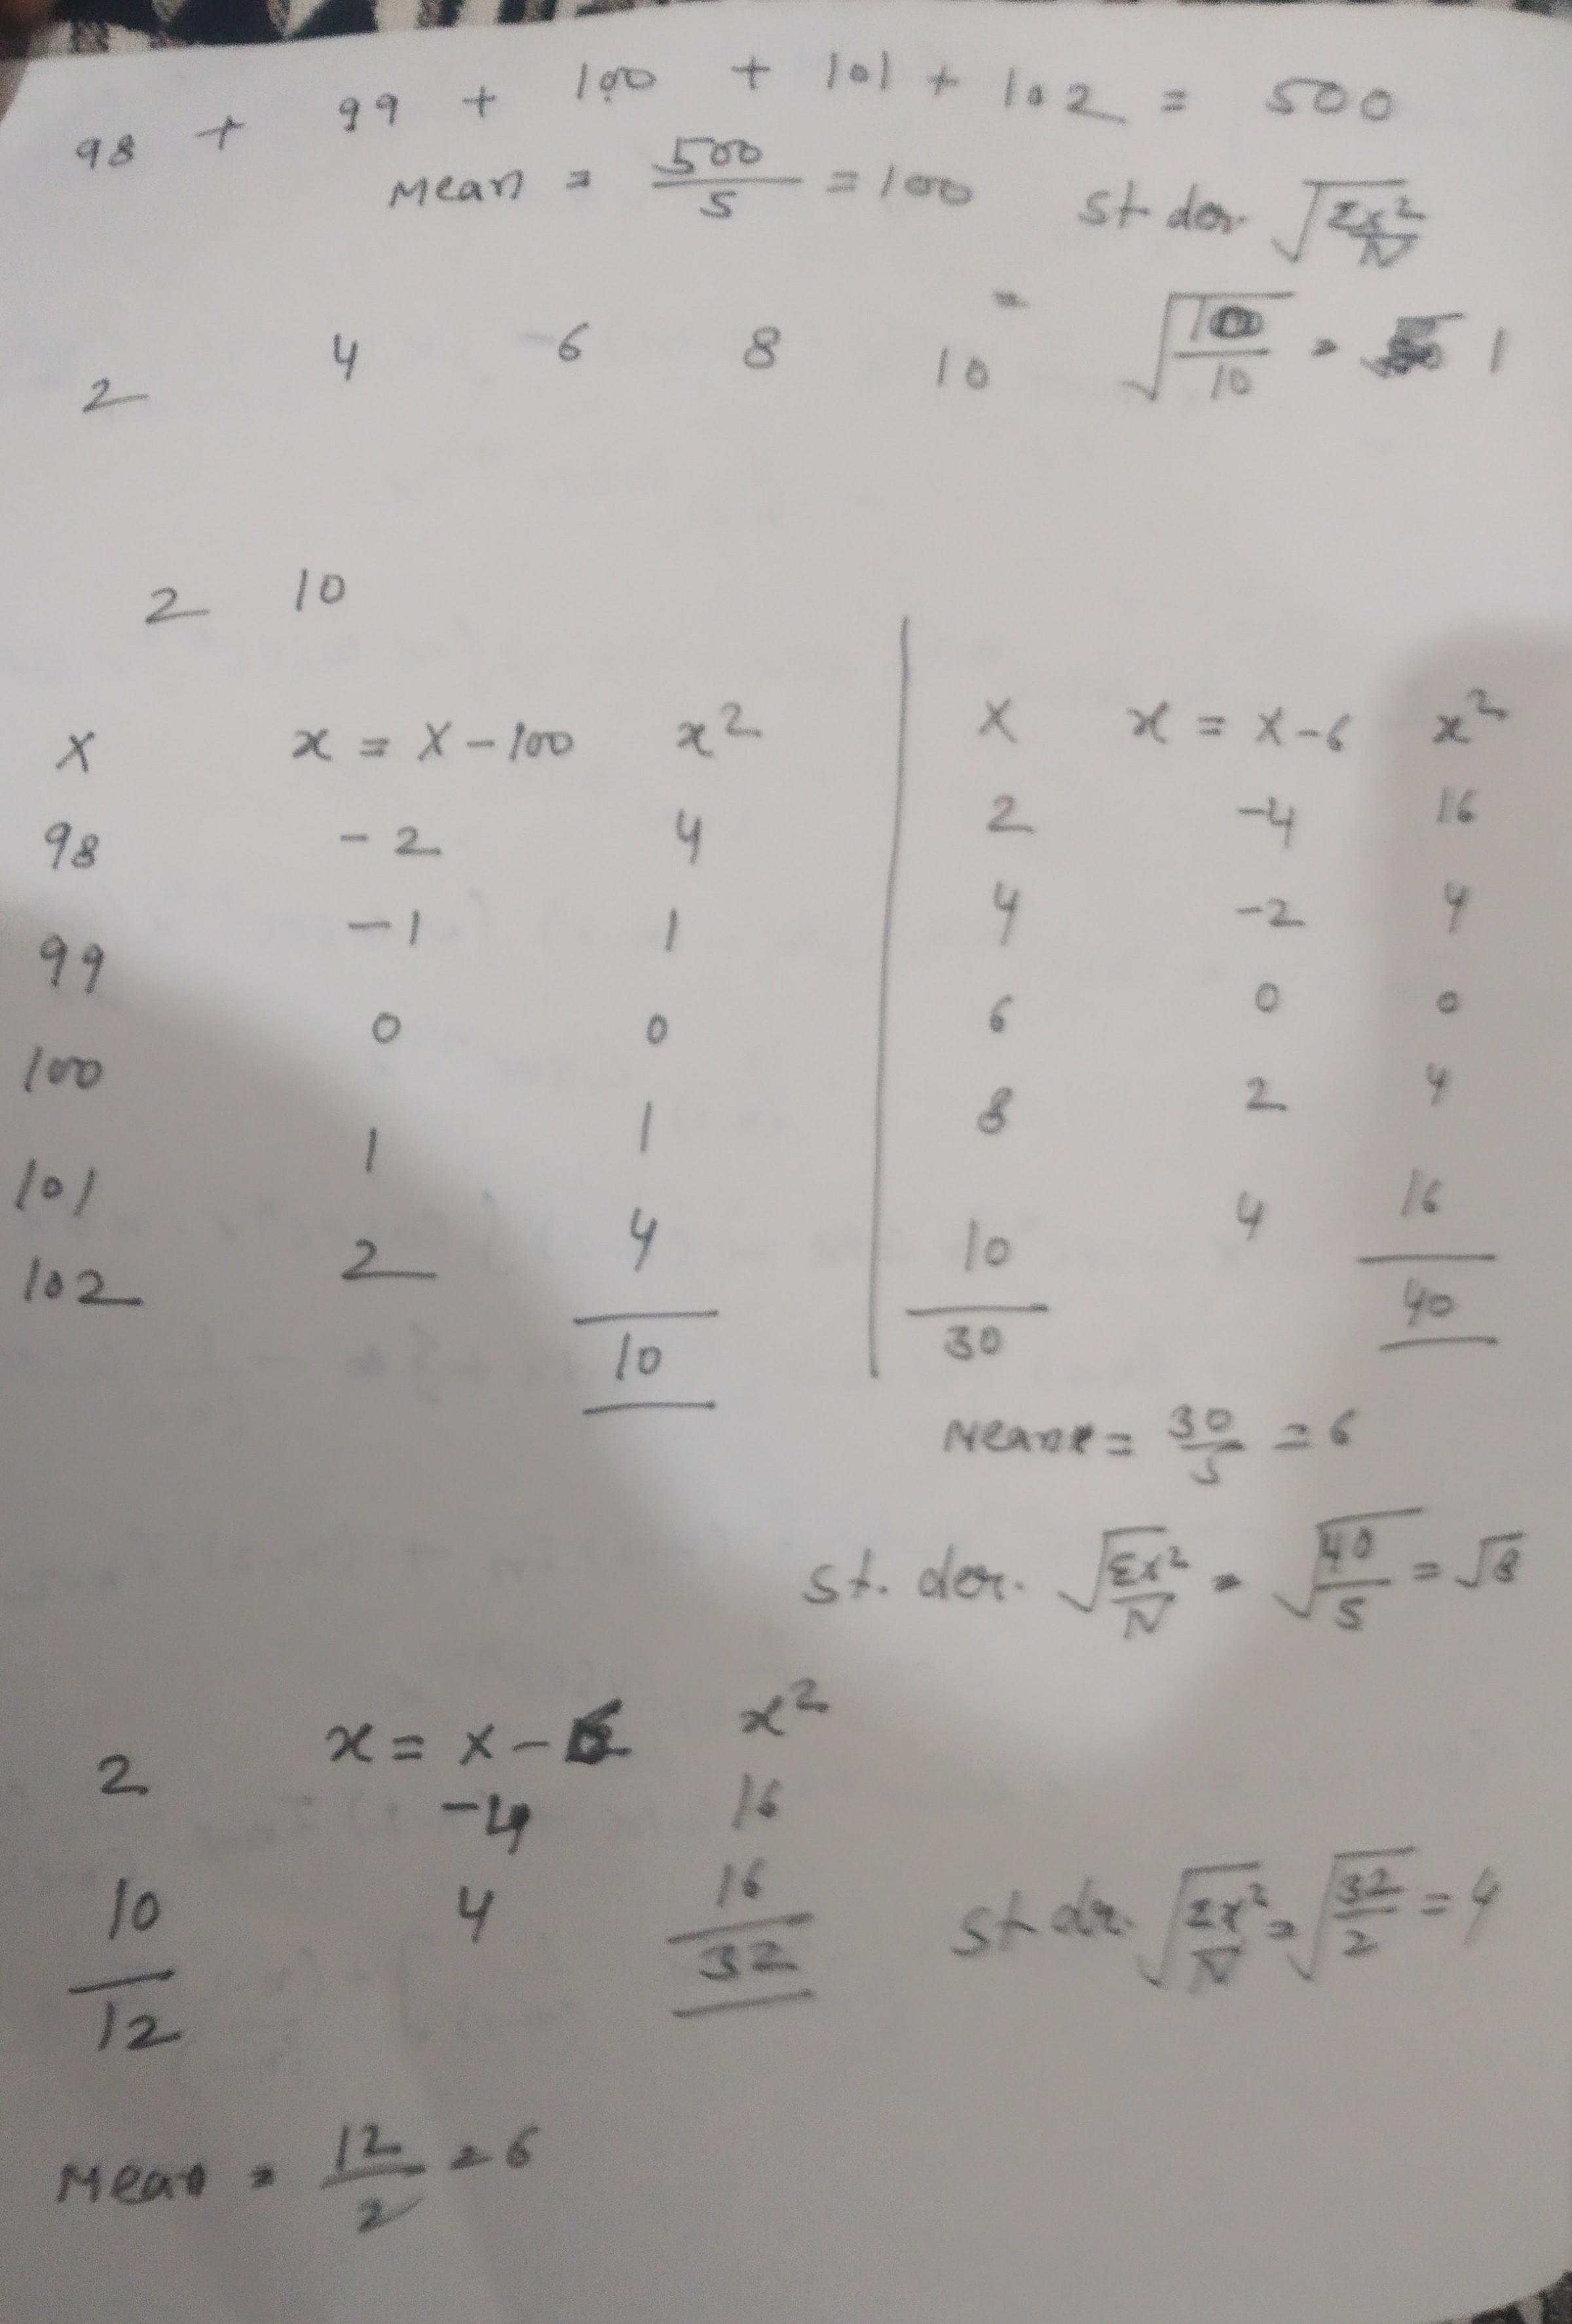 98 + 99 + 100 + 101 + 102 = 500
Mean = 500/5 = 100 st dev. √Σx²/N
2 4 6 8 10 = √10/10 = 1
2 10
X x = X - 100 x²
98 -2 4
99 -1 1
100 0 0
101 1 1
102 2 4
10
X x = X-6 x²
2 -4 16
4 -2 4
6 0 0
8 2 4
10 4 16
30 40
Mean = 30/5 = 6
st. dev. √Σx²/N = √40/5 = √8
x = X - 6 x²
2 -4 16
10 4 16
12 32
st dv. √Σx²/N = √32/2 = 4
Mean = 12/2 = 6